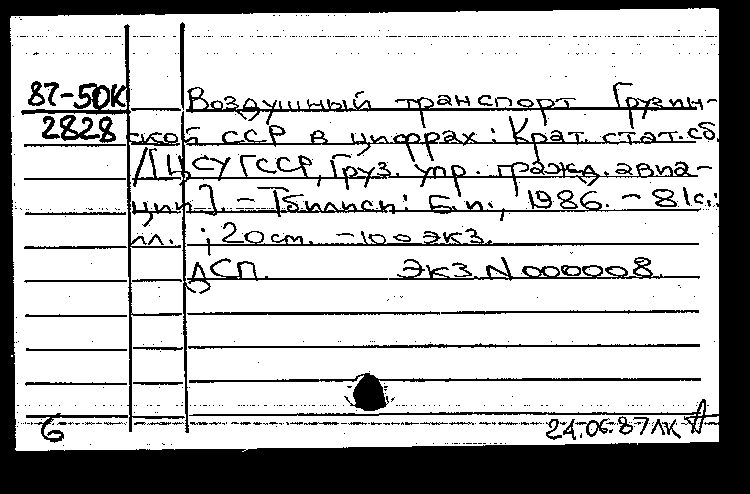 87-50К
2828
Воздушный транспорт Грузин-
ской ССР в цифрах: Крат. стат. сб.
/[ЦСУ ГССР, Груз. упр. гражд. авиа-
ции]. - Тбилиси: Б.и., 1986. - 81с.:
ил. ; 20 см. - 100 экз.
ДСП. Экз. N 000008.
6
24.06.87 ЛК